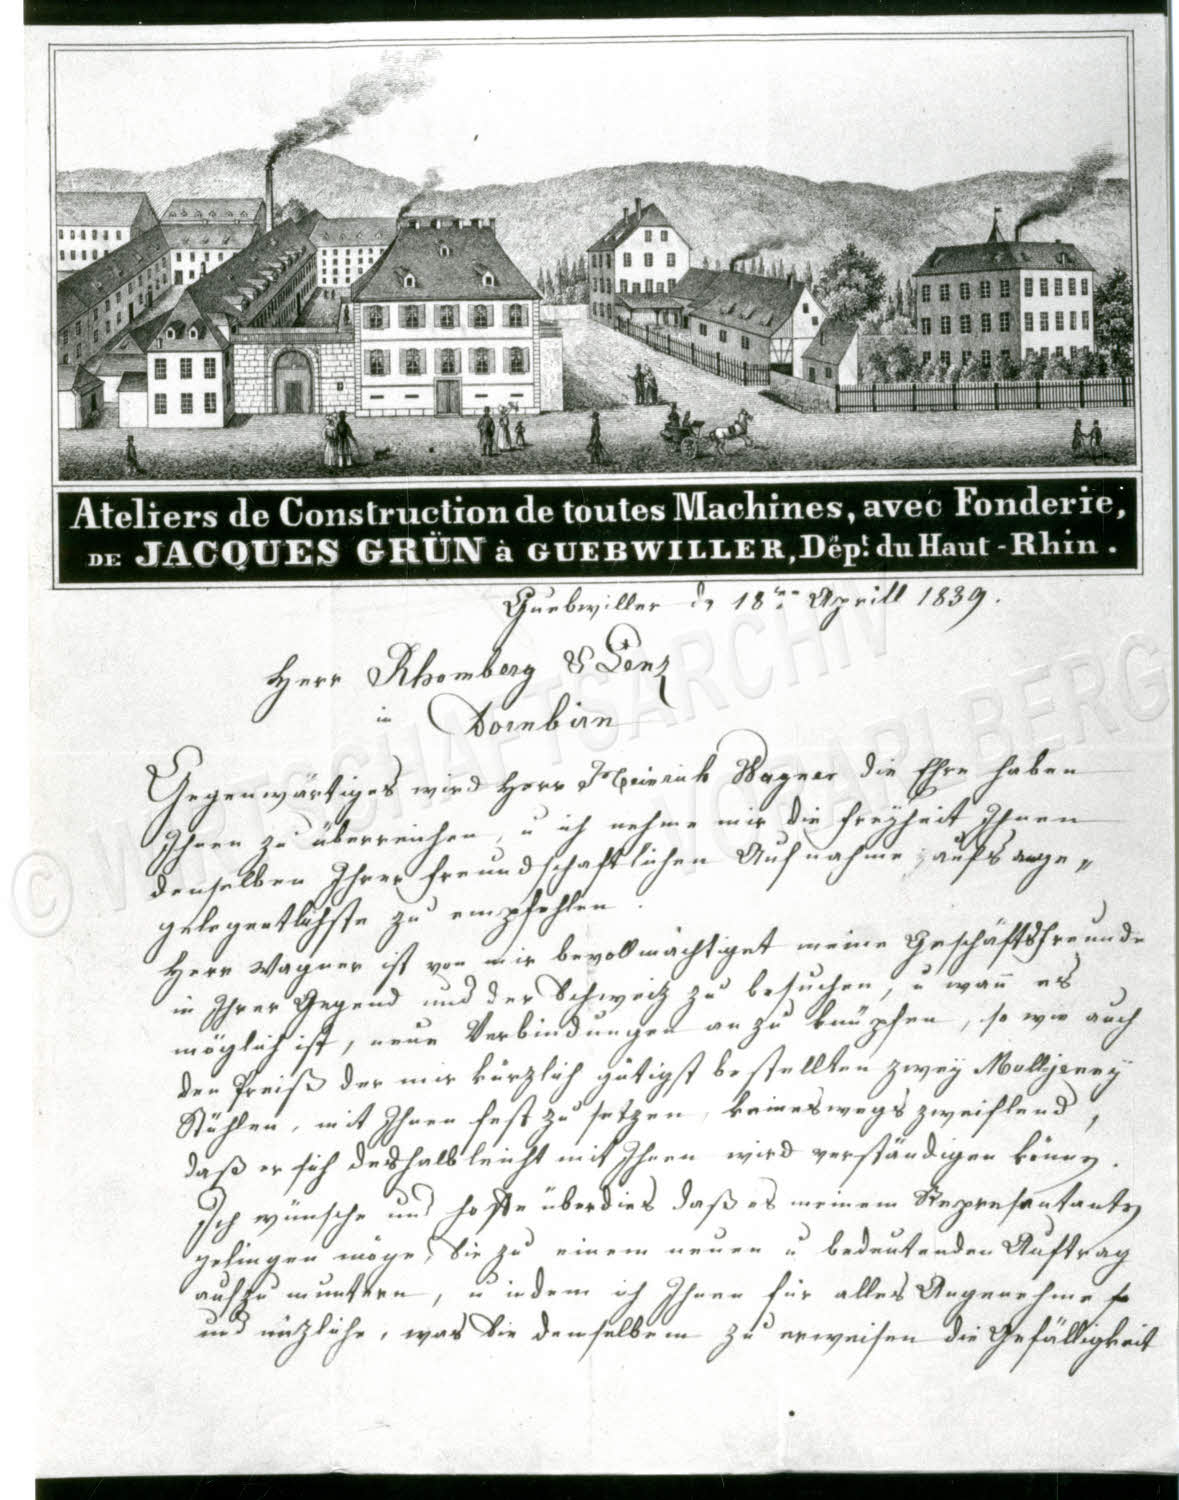 Ateliers de Construction de toutes Machines, avec Fonderie,
DE JACQUES GRÜN à GUEBWILLER, Dépt. du Haut-Rhin.
Guebwiller d. 18ten Aprill 1839.
Herr Rhomberg & Lenz
in Dornbirn
Gegenwärtiges wird Herr Heinrich Wagner die Ehre haben
Ihnen zu überreichen, u ich nehme mir die freyheit Ihnen
denselben Ihrer freundschaftlichen Aufnahme aufs ange„
gelegentlichste zu empfehlen.
Herr Wagner ist von mir bevollmächtiget meine Geschäftsfreunde
in Ihrer Gegend und der Schweitz zu besuchen, u wann es
möglich ist, neue Verbindungen anzuknüpfen, so wie auch
den Preiß der mir kürzlich gütigst bestellten zwey Mulljenny
Stühlen, mit Ihnen fest zu setzen, keineswegs zweiflend,
daß er sich deshalb leicht mit Ihnen wird verständigen können.
Ich wünsche und hoffe überdies daß es meinem Representanten
gelingen möge, Sie zu einem neuen u bedeutenden Auftrag
aufzumuntern, u indem ich Ihnen für alles Angenehme
und nüzliche, was Sie demselbem zu erweisen die Gefälligkeit
© WIRTSCHAFTSARCHIV VORARLBERG